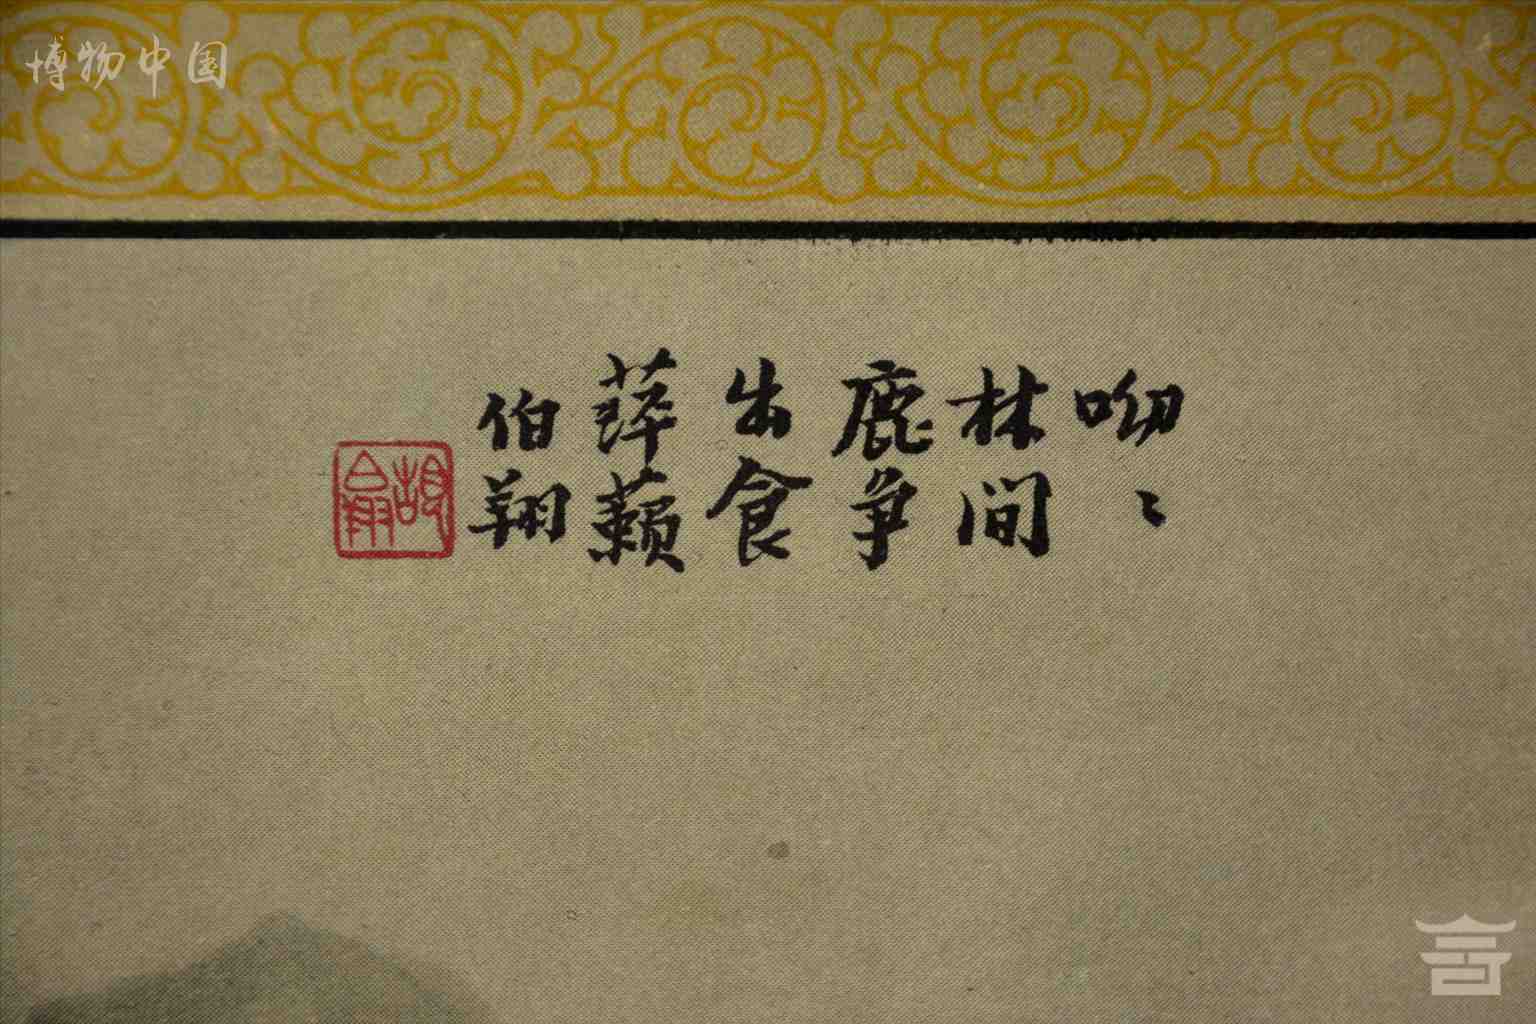 博物中国
呦〻
林间
鹿争
出食
蘋藾
伯翔
胡
龠